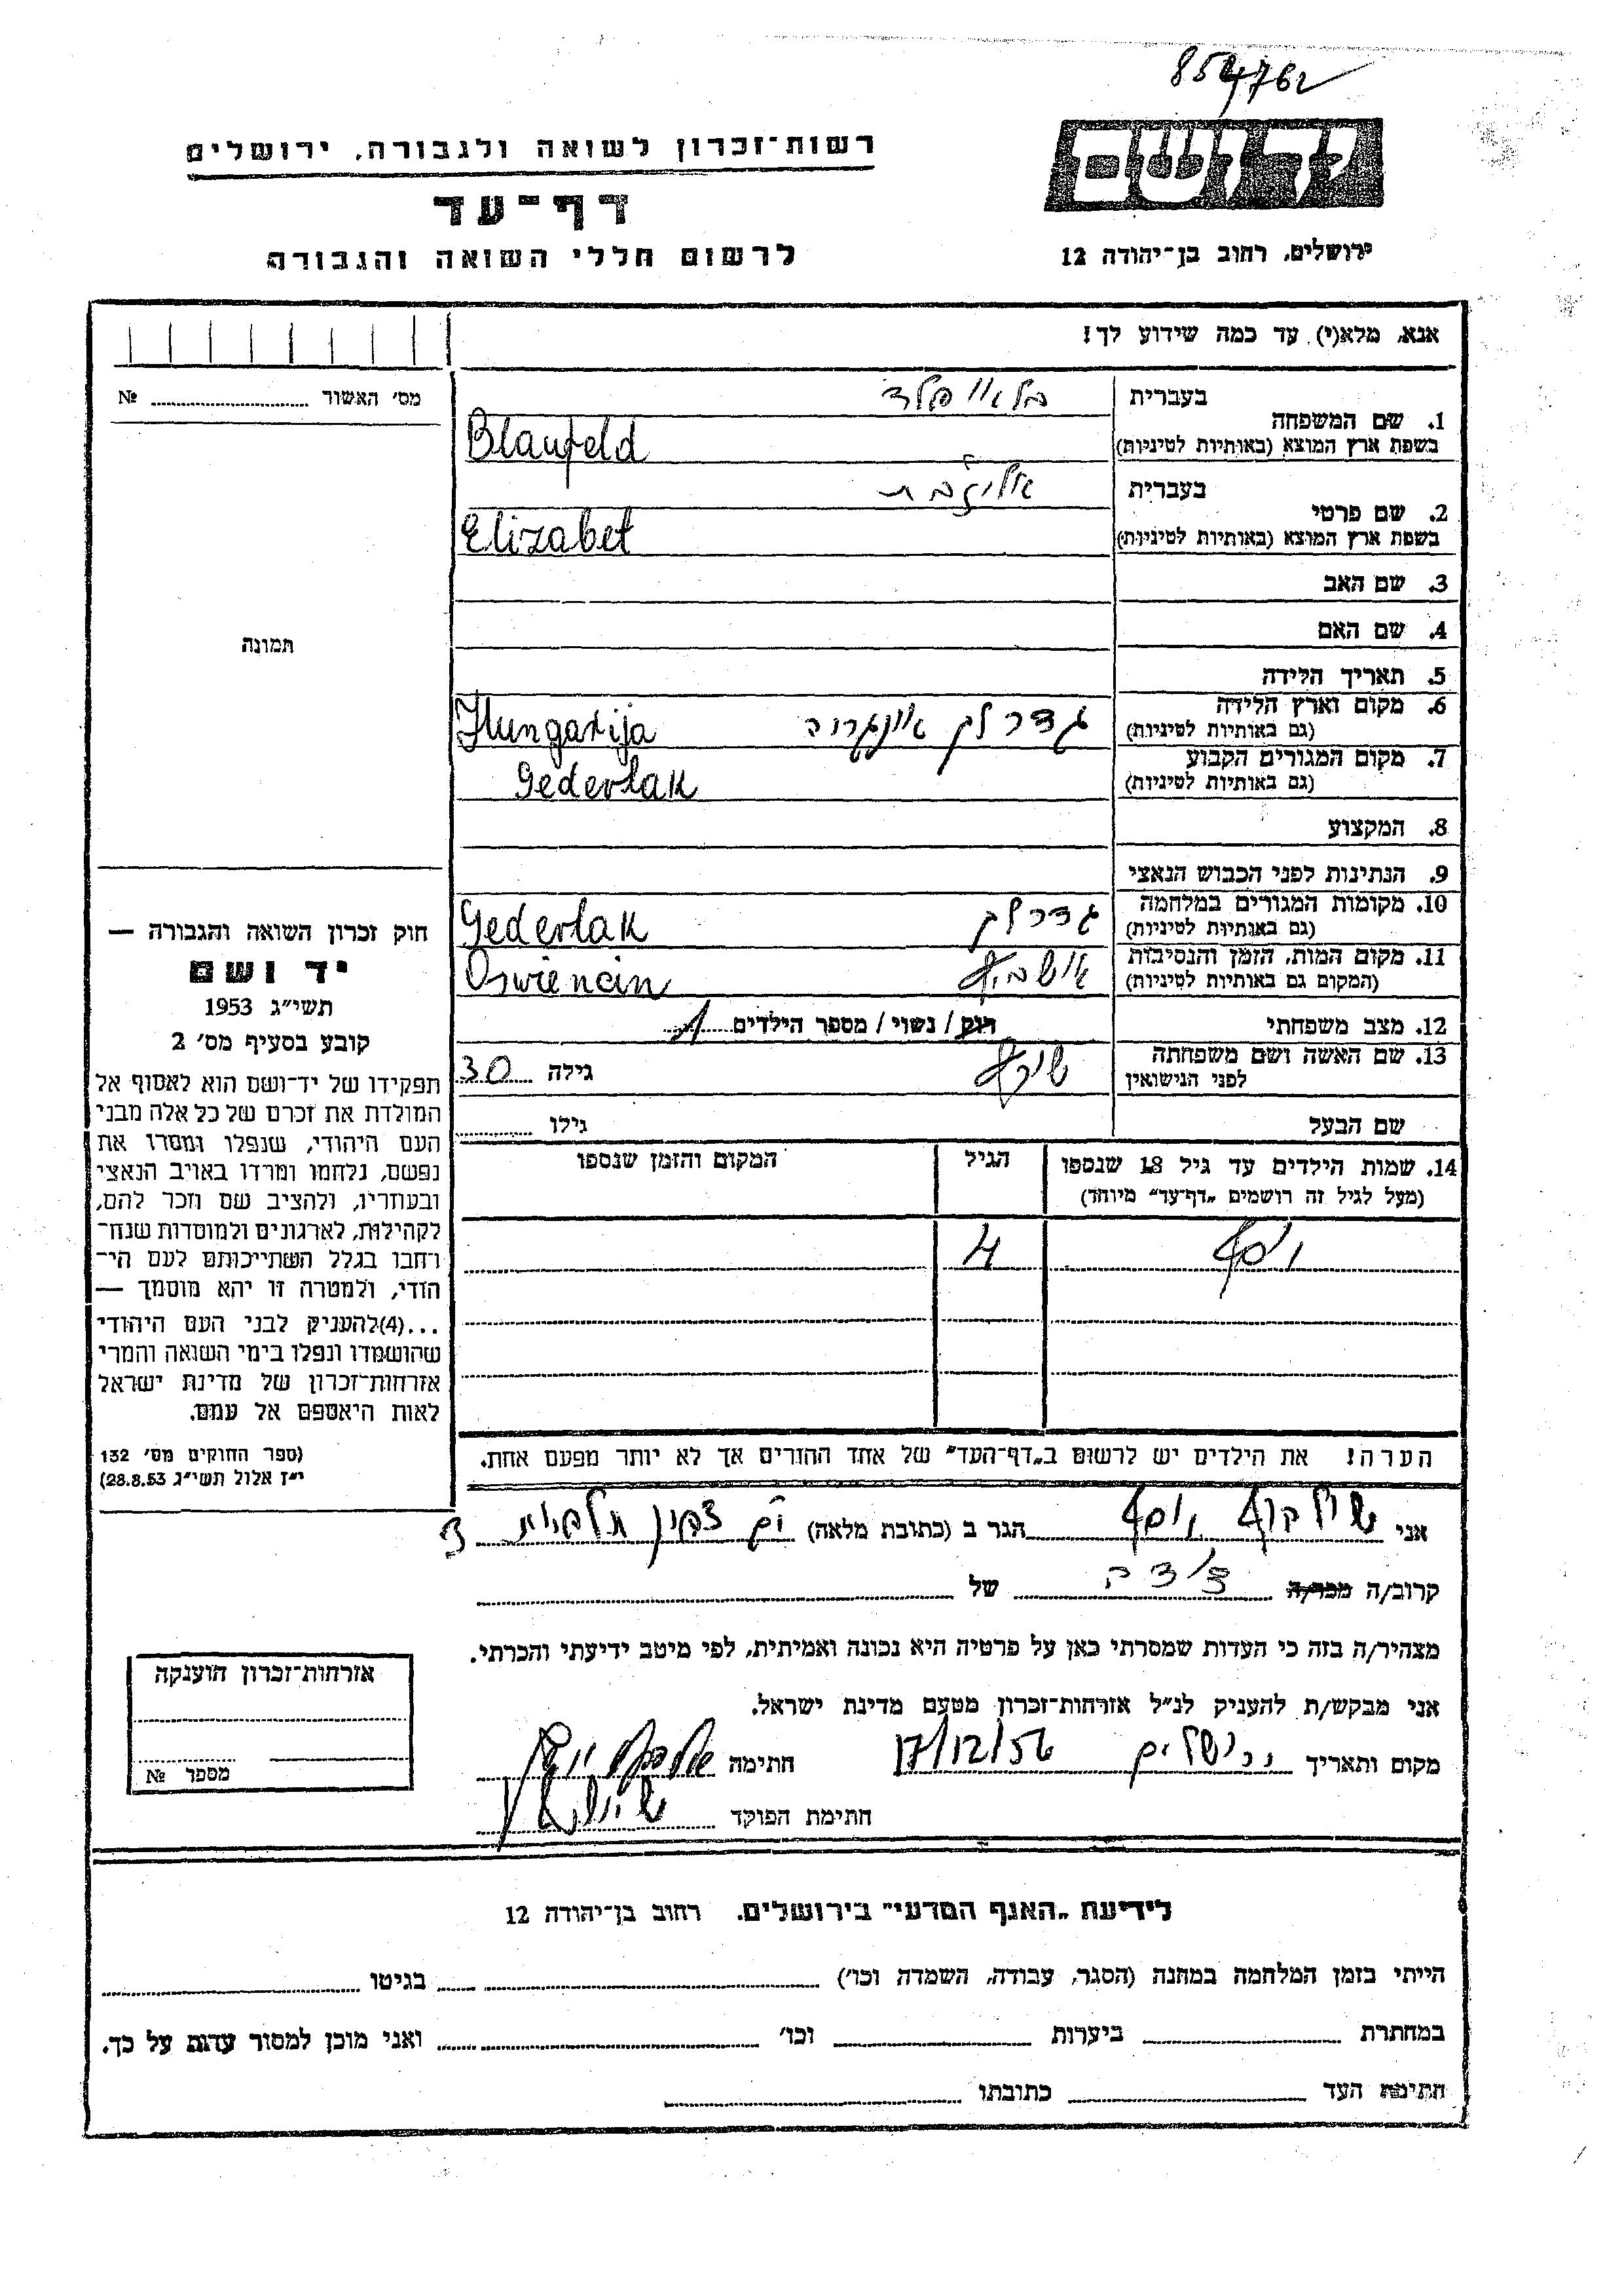 854762
רשות־זכרון לשואה ולגבורה, ירושלים
דף־עד
לרשום חללי השואה והגבורה
יד ושם
ירושלים, רחוב בן־יהודה 12
אנא, מלא(י) עד כמה שידוע לך!
מס׳ האשור № 
בעברית בלאופלד
1. שם המשפחה
בשפת ארץ המוצא (באותיות לטיניות) Blaufeld
בעברית אליזבת
2. שם פרטי
בשפת ארץ המוצא (באותיות לטיניות) Elizabet
3. שם האב
4. שם האם
5. תאריך הלידה
6. מקום וארץ הלידה
(גם באותיות לטיניות) גדרלק אונגריה Hungarija
7. מקום המגורים הקבוע
(גם באותיות לטיניות) Gederlak
8. המקצוע
9. הנתינות לפני הכבוש הנאצי
10. מקומות המגורים במלחמה
(גם באותיות לטיניות) גדרלק Gederlak
11. מקום המות, הזמן והנסיבות
(המקום גם באותיות לטיניות) Oswiencin
12. מצב משפחתי רוק / נשוי / מספר הילדים 1
13. שם האשה ושם משפחתה
לפני הנישואין גילה 30
שם הבעל גילו
14. שמות הילדים עד גיל 18 שנספו
(מעל לגיל זה רושמים „דף־עד״ מיוחד)
הגיל
המקום והזמן שנספו
יוסף 4
הערה! את הילדים יש לרשום ב„דף־העד״ של אחד ההורים אך לא יותר מפעם אחת.
תמונה
חוק זכרון השואה והגבורה —
יד ושם
תשי״ג 1953
קובע בסעיף מס׳ 2
תפקידו של יד־ושם הוא לאסוף אל
המולדת את זכרם של כל אלה מבני
העם היהודי, שנפלו ומסרו את
נפשם, נלחמו ומרדו באויב הנאצי
ובעוזריו, ולהציב שם וזכר להם,
לקהילות, לארגונים ולמוסדות שנח־
רחבו בגלל השתייכותם לעם הי־
הודי, ולמטרה זו יהא מוסמך —
...(4)להעניק לבני העם היהודי
שהושמדו ונפלו בימי השואה והמרי
אזרחות־זכרון של מדינת ישראל
לאות היאספם אל עמם.
(ספר החוקים מס׳ 132
י״ז אלול תשי״ג 28.8.53)
אני יוסף הגר ב (כתובת מלאה) תלפיות
קרוב/ה מכר/ה של
מצהיר/ה בזה כי העדות שמסרתי כאן על פרטיה היא נכונה ואמיתית, לפי מיטב ידיעתי והכרתי.
אני מבקש/ת להעניק לנ״ל אזרחות־זכרון מטעם מדינת ישראל.
מקום ותאריך ירושלים 17/12/56 חתימה
חתימת הפוקד
אזרחות־זכרון הוענקה
מספר №
לידיעת „האגף המדעי״ בירושלים, רחוב בן־יהודה 12
הייתי בזמן המלחמה במחנה (הסגר, עבודה, השמדה וכו׳) בגיטו
במחתרת ביערות וכו׳ ואני מוכן למסור עדות על כך.
חתימת העד כתובתו